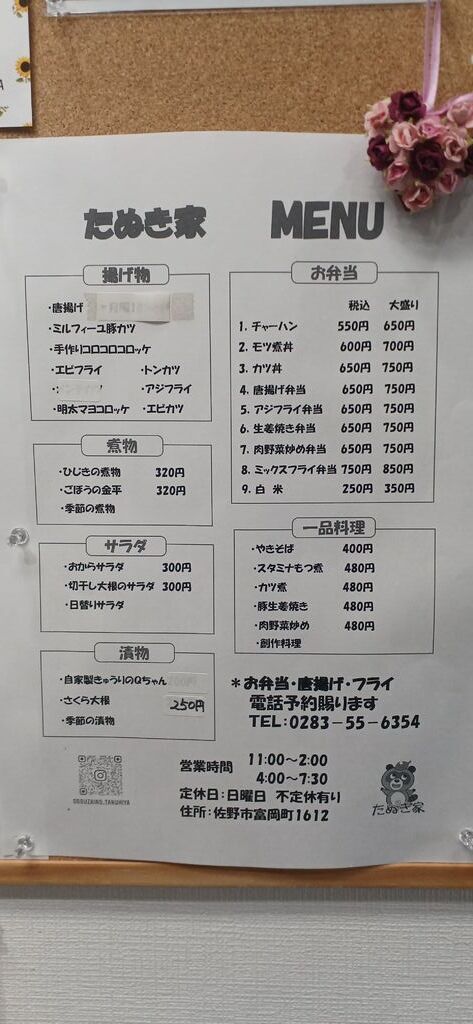 たぬき家 MENU
揚げ物
・唐揚げ
・ミルフィーユ豚カツ
・手作りコロコロコロッケ
・エビフライ ・トンカツ
・アジフライ
・明太マヨコロッケ ・エビカツ
煮物
・ひじきの煮物 320円
・ごぼうの金平 320円
・季節の煮物
サラダ
・おからサラダ 300円
・切干し大根のサラダ 300円
・日替りサラダ
漬物
・自家製きゅうりのQちゃん
・さくら大根 250円
・季節の漬物
お弁当
税込 大盛り
1. チャーハン 550円 650円
2. モツ煮丼 600円 700円
3. カツ丼 650円 750円
4. 唐揚げ弁当 650円 750円
5. アジフライ弁当 650円 750円
6. 生姜焼き弁当 650円 750円
7. 肉野菜炒め弁当 650円 750円
8. ミックスフライ弁当 750円 850円
9. 白 米 250円 350円
一品料理
・やきそば 400円
・スタミナもつ煮 480円
・カツ煮 480円
・豚生姜焼き 480円
・肉野菜炒め 480円
・創作料理
＊お弁当・唐揚げ・フライ
電話予約賜ります
TEL:0283-55-6354
営業時間 11:00～2:00
4:00～7:30
定休日：日曜日 不定休有り
住所：佐野市富岡町1612
たぬき家